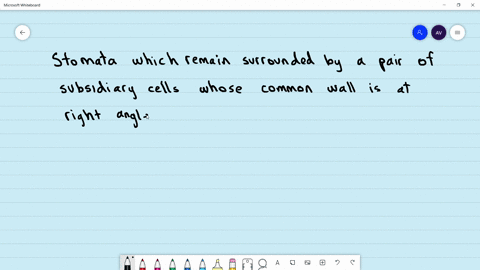 Microsoft Whiteboard
AV
Stomata which remain surrounded by a pair of
subsidiary cells whose common wall is at
right angl